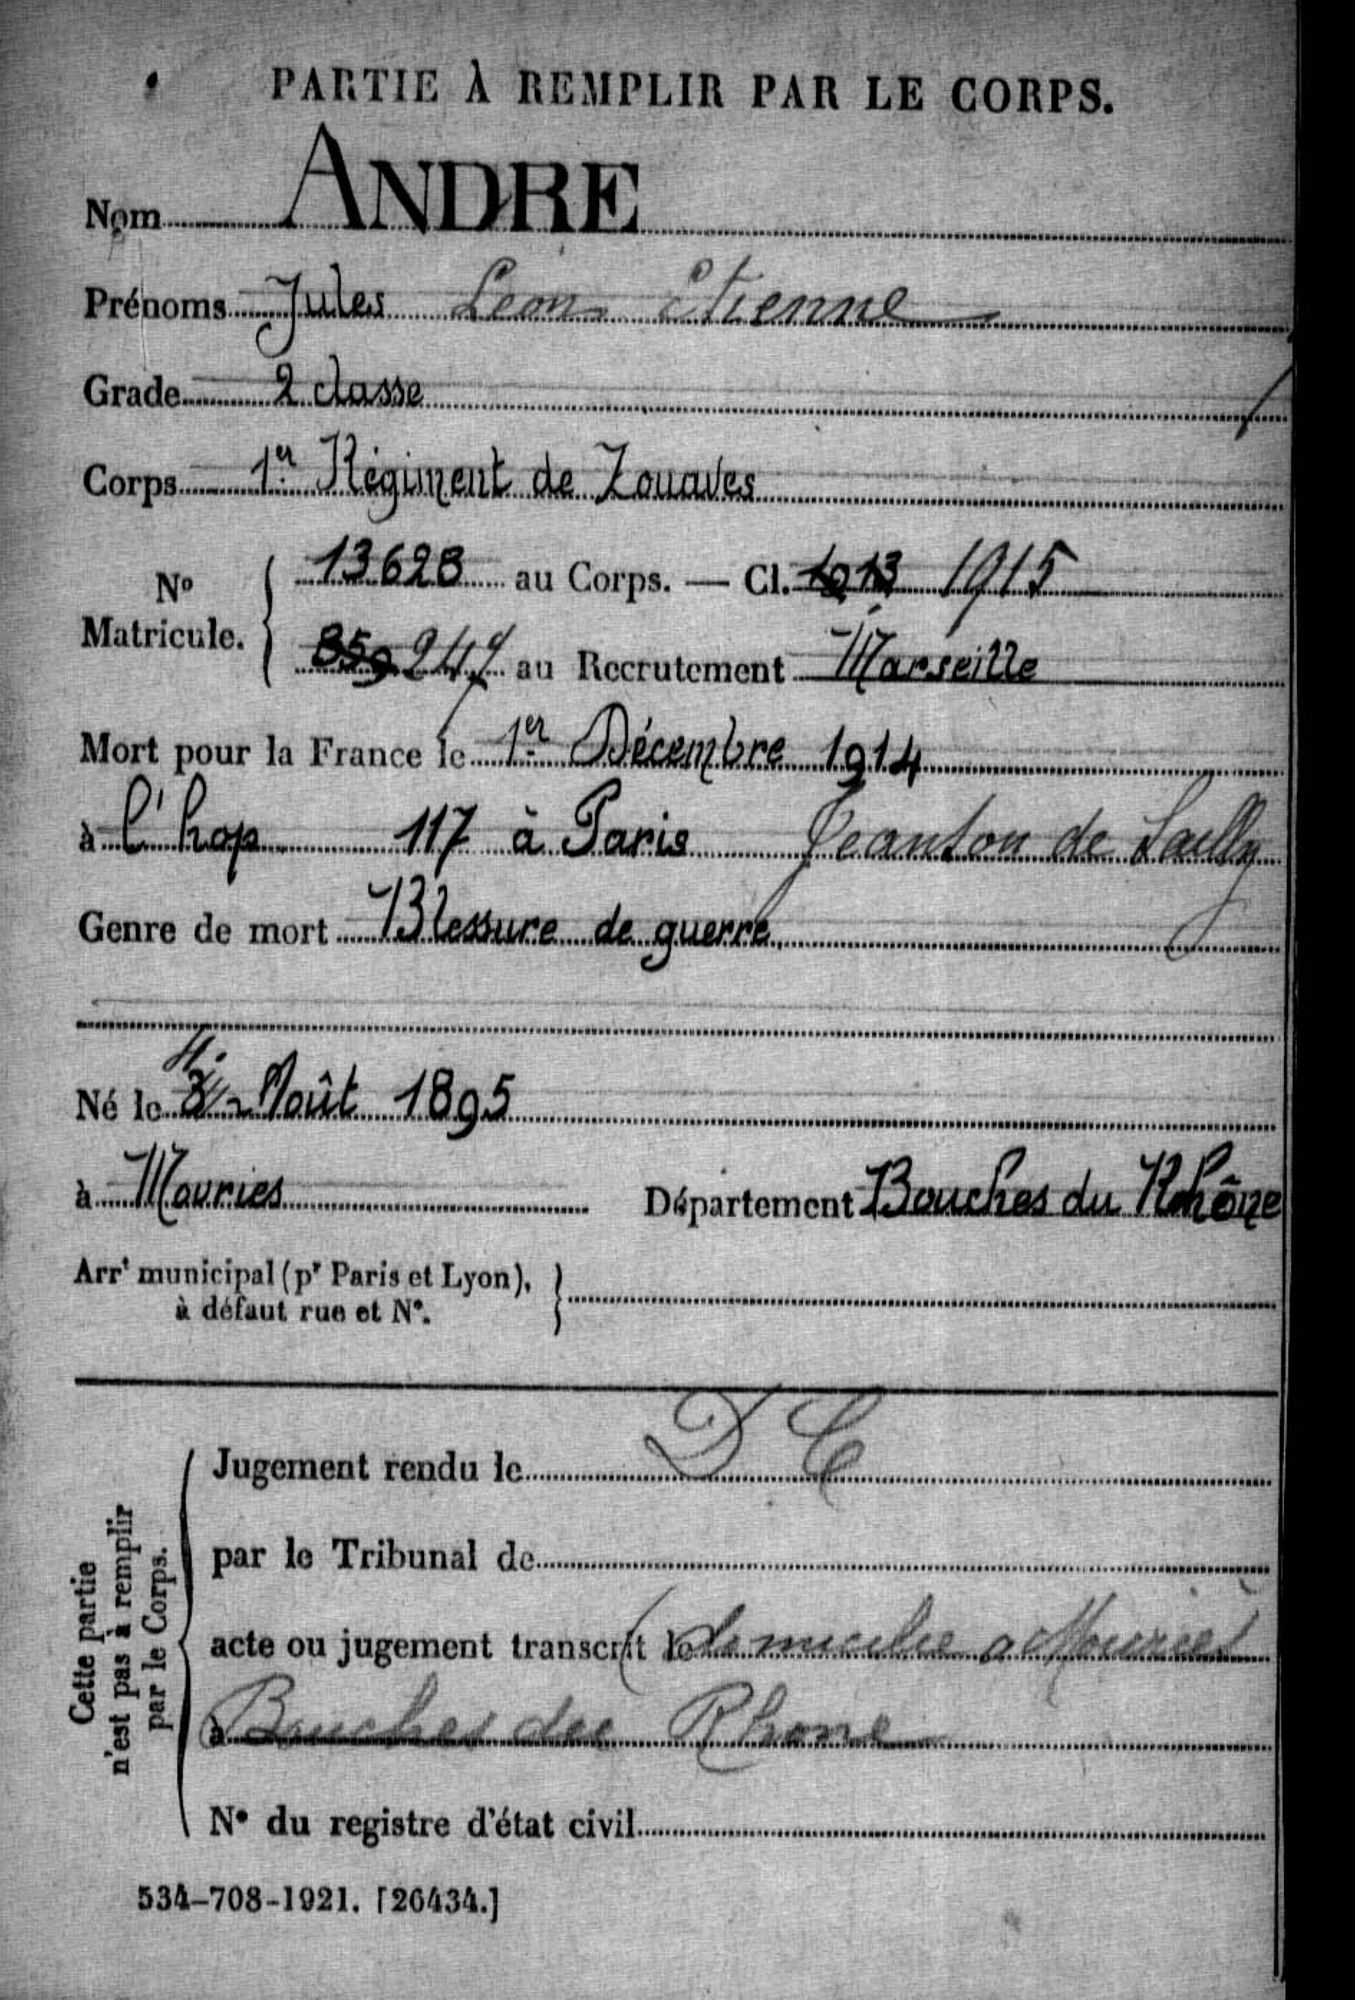 PARTIE À REMPLIR PAR LE CORPS.
Nom ANDRE
Prénoms Jules Léon Etienne
Grade 2 classe
Corps 1er Régiment de Zouaves
No Matricule. 13628 au Corps. — Cl. 1913 1915
859 247 au Recrutement Marseille
Mort pour la France le 1er Décembre 1914
à l'hop 117 à Paris Jeanson de Sailly
Genre de mort Blessure de guerre
Né le 3 4 Août 1895
à Mouries Département Bouches du Rhône
Arrt municipal (pr Paris et Lyon), à défaut rue et No.
Cette partie n'est pas à remplir par le Corps.
Jugement rendu le D C
par le Tribunal de
acte ou jugement transcrit le (domicilié a Mouriès
à Bouches du Rhone
No du registre d'état civil
534-708-1921. [26434.]